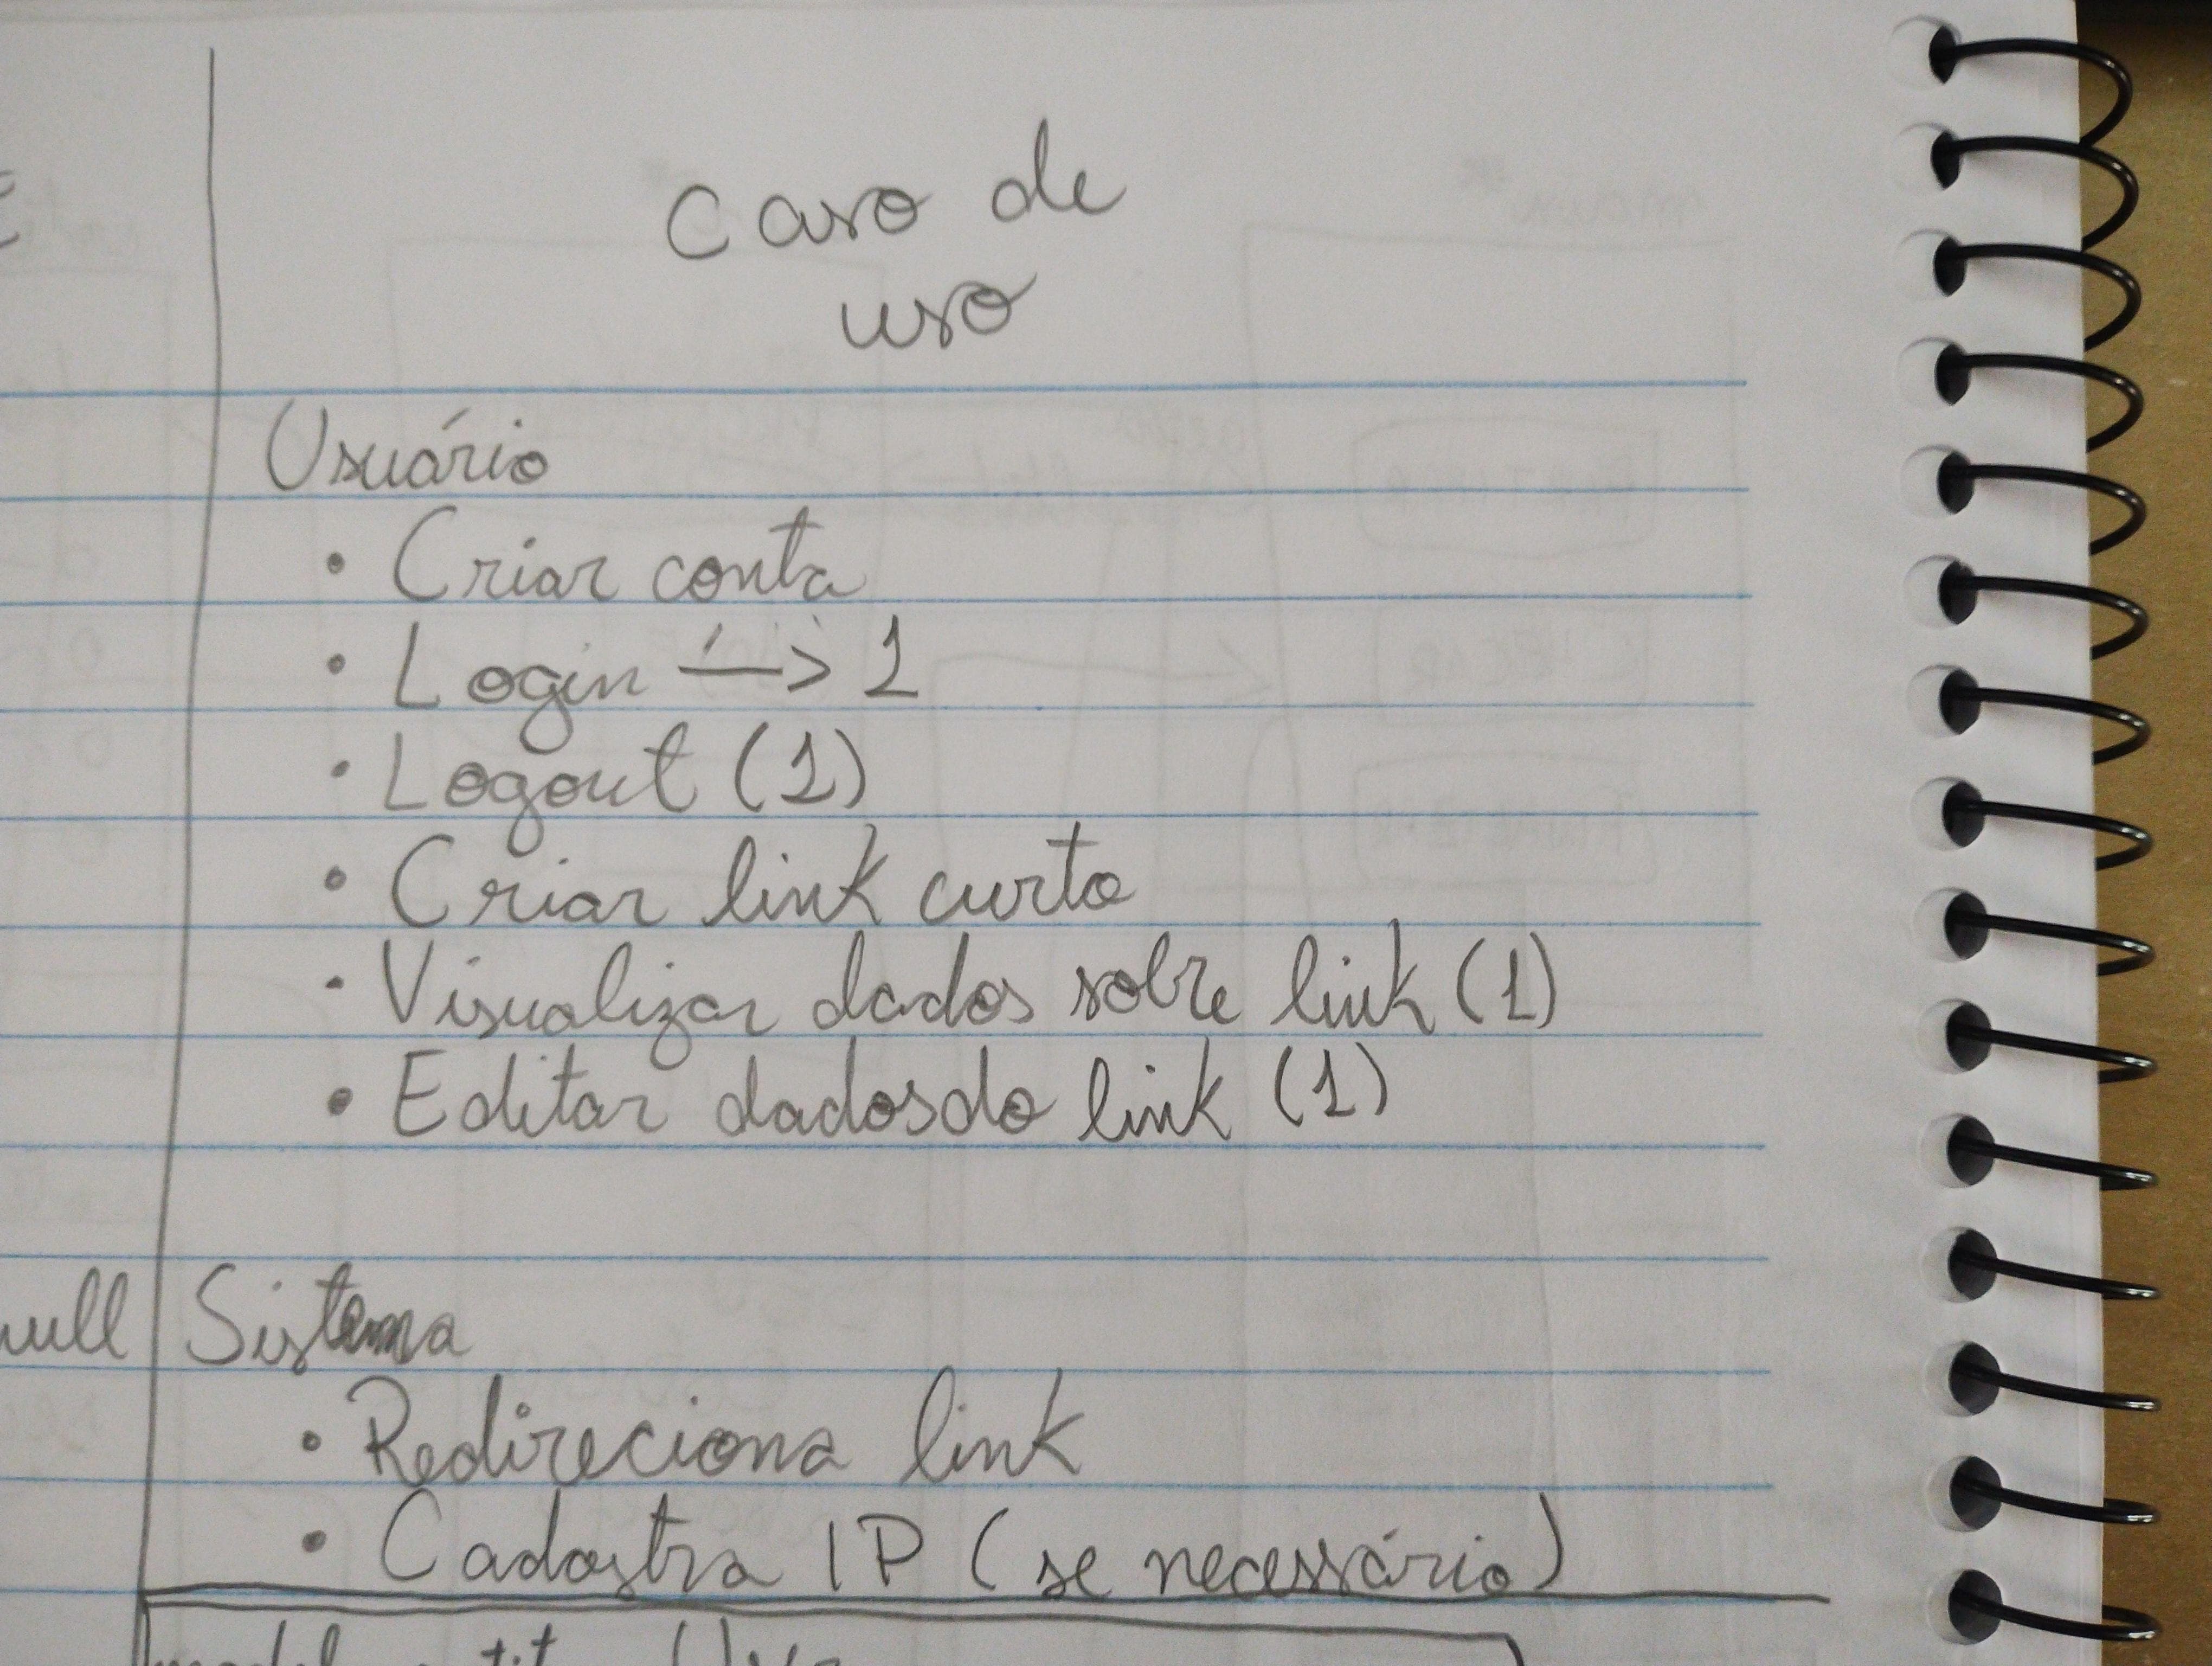 Caso de
uso
Usuário
• Criar conta
• Login —> 1
• Logout (1)
• Criar link curto
• Visualizar dados sobre link (1)
• Editar dadosdo link (1)
null
Sistema
• Redireciona link
• Cadastra IP (se necessário)